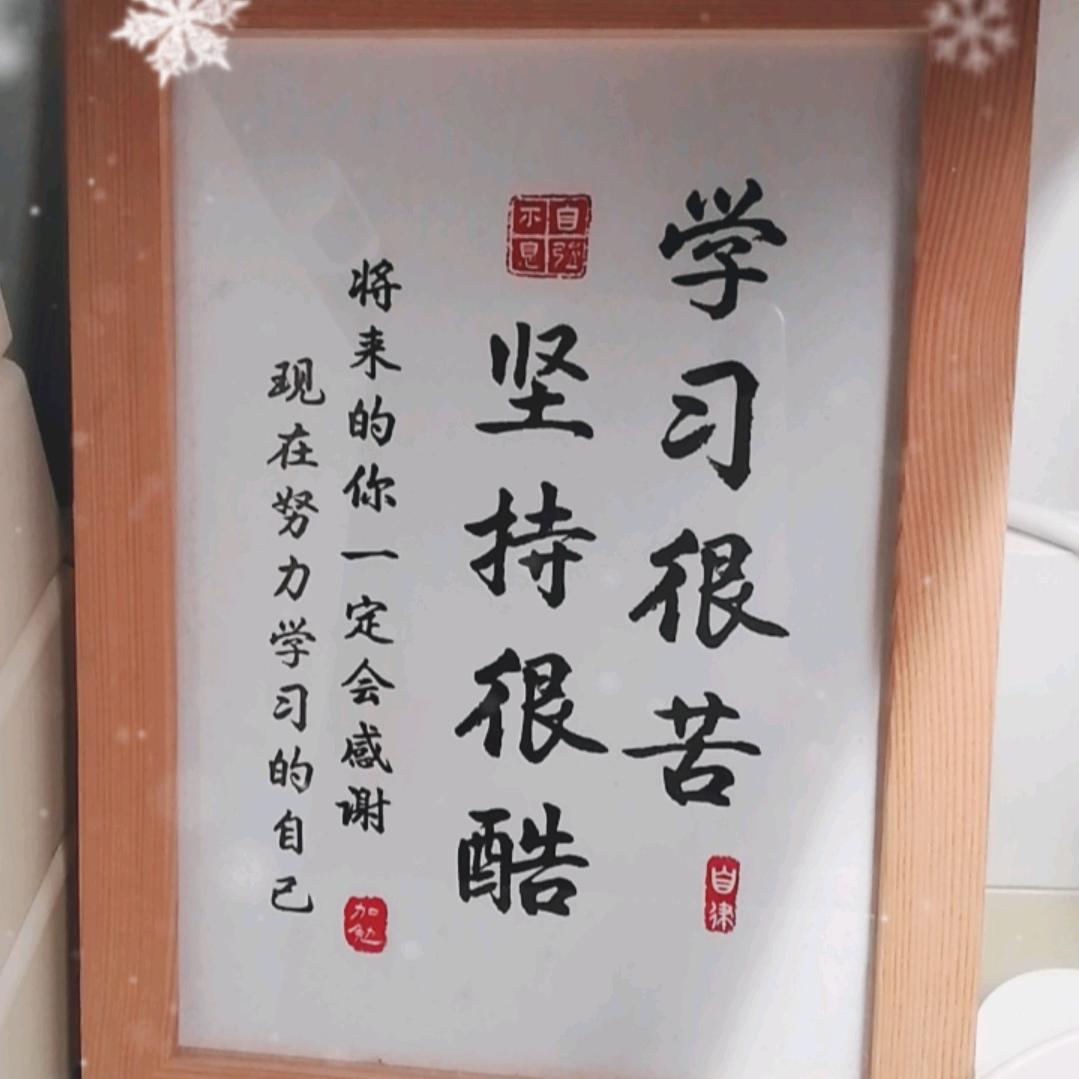 学习很苦
自律
自强
不息
坚持很酷
将来的你一定会感谢
加勉
现在努力学习的自己